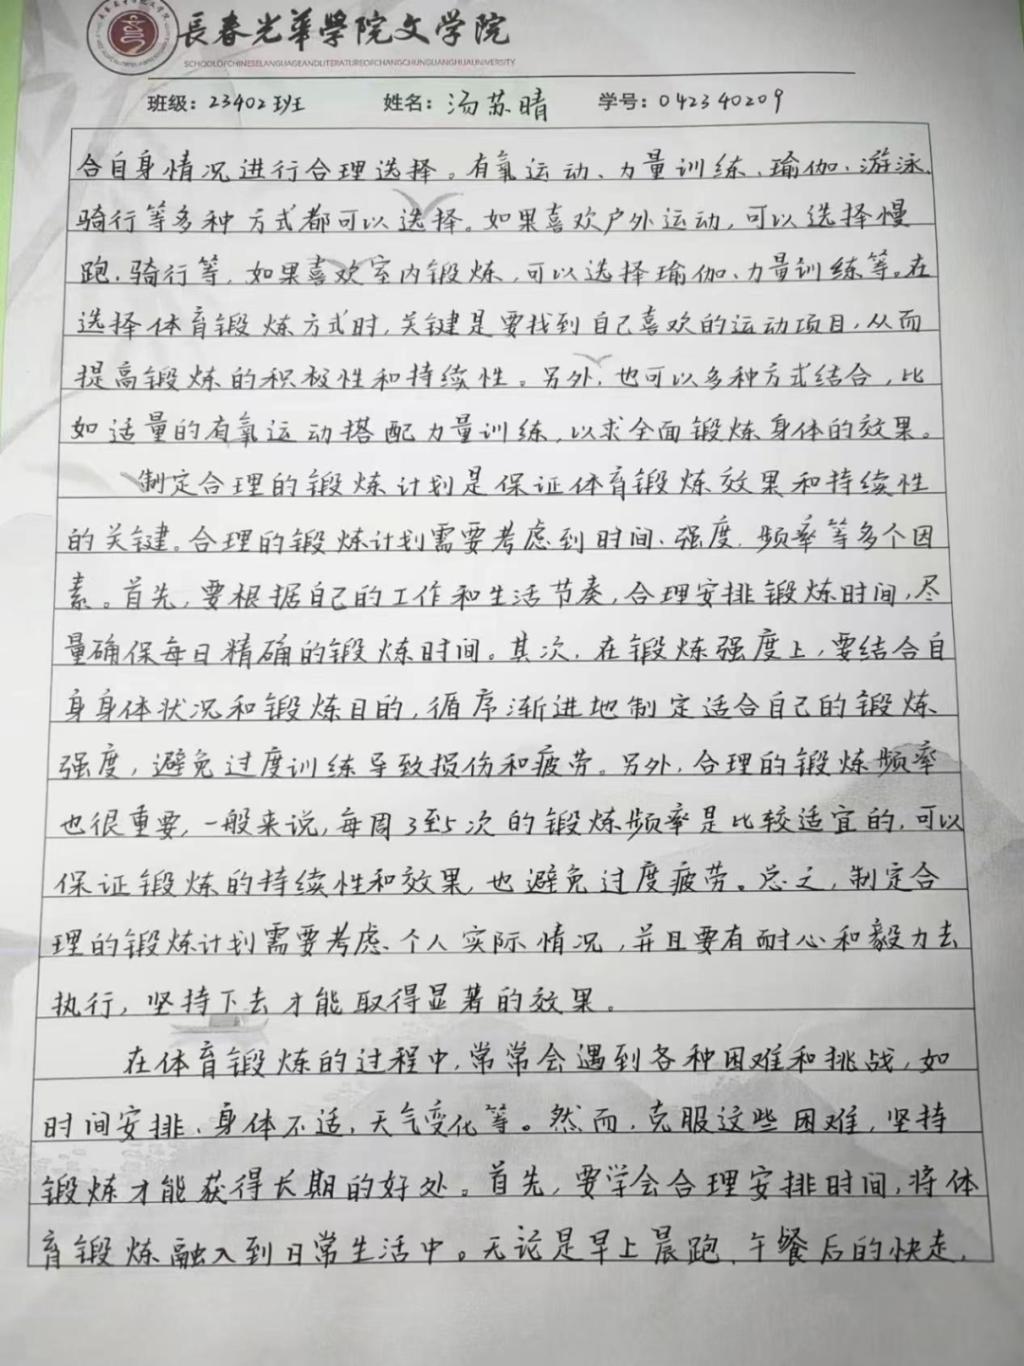 長春光華學院文学院
SCHOOLOFCHINESELANGUAGEANDLITERATUREOFCHANGCHUNGUANGHUAUNIVERSITY
班级：23402班 姓名：汤苏晴 学号：042340209
合自身情况进行合理选择。有氧运动、力量训练、瑜伽、游泳、
骑行等多种方式都可以选择。如果喜欢户外运动，可以选择慢
跑、骑行等，如果喜欢室内锻炼，可以选择瑜伽、力量训练等。在
选择体育锻炼方式时，关键是要找到自己喜欢的运动项目，从而
提高锻炼的积极性和持续性。另外，也可以多种方式结合，比
如适量的有氧运动搭配力量训练，以求全面锻炼身体的效果。
制定合理的锻炼计划是保证体育锻炼效果和持续性
的关键。合理的锻炼计划需要考虑到时间、强度、频率等多个因
素。首先，要根据自己的工作和生活节奏，合理安排锻炼时间，尽
量确保每日精确的锻炼时间。其次，在锻炼强度上，要结合自
身身体状况和锻炼目的，循序渐进地制定适合自己的锻炼
强度，避免过度训练导致损伤和疲劳。另外，合理的锻炼频率
也很重要，一般来说，每周3到5次的锻炼频率是比较适宜的，可以
保证锻炼的持续性和效果，也避免过度疲劳。总之，制定合
理的锻炼计划需要考虑个人实际情况，并且要有耐心和毅力去
执行，坚持下去才能取得显著的效果。
在体育锻炼的过程中，常常会遇到各种困难和挑战，如
时间安排、身体不适、天气变化等。然而，克服这些困难，坚持
锻炼才能获得长期的好处。首先，要学会合理安排时间，将体
育锻炼融入到日常生活中。无论是早上晨跑、午餐后的快走，